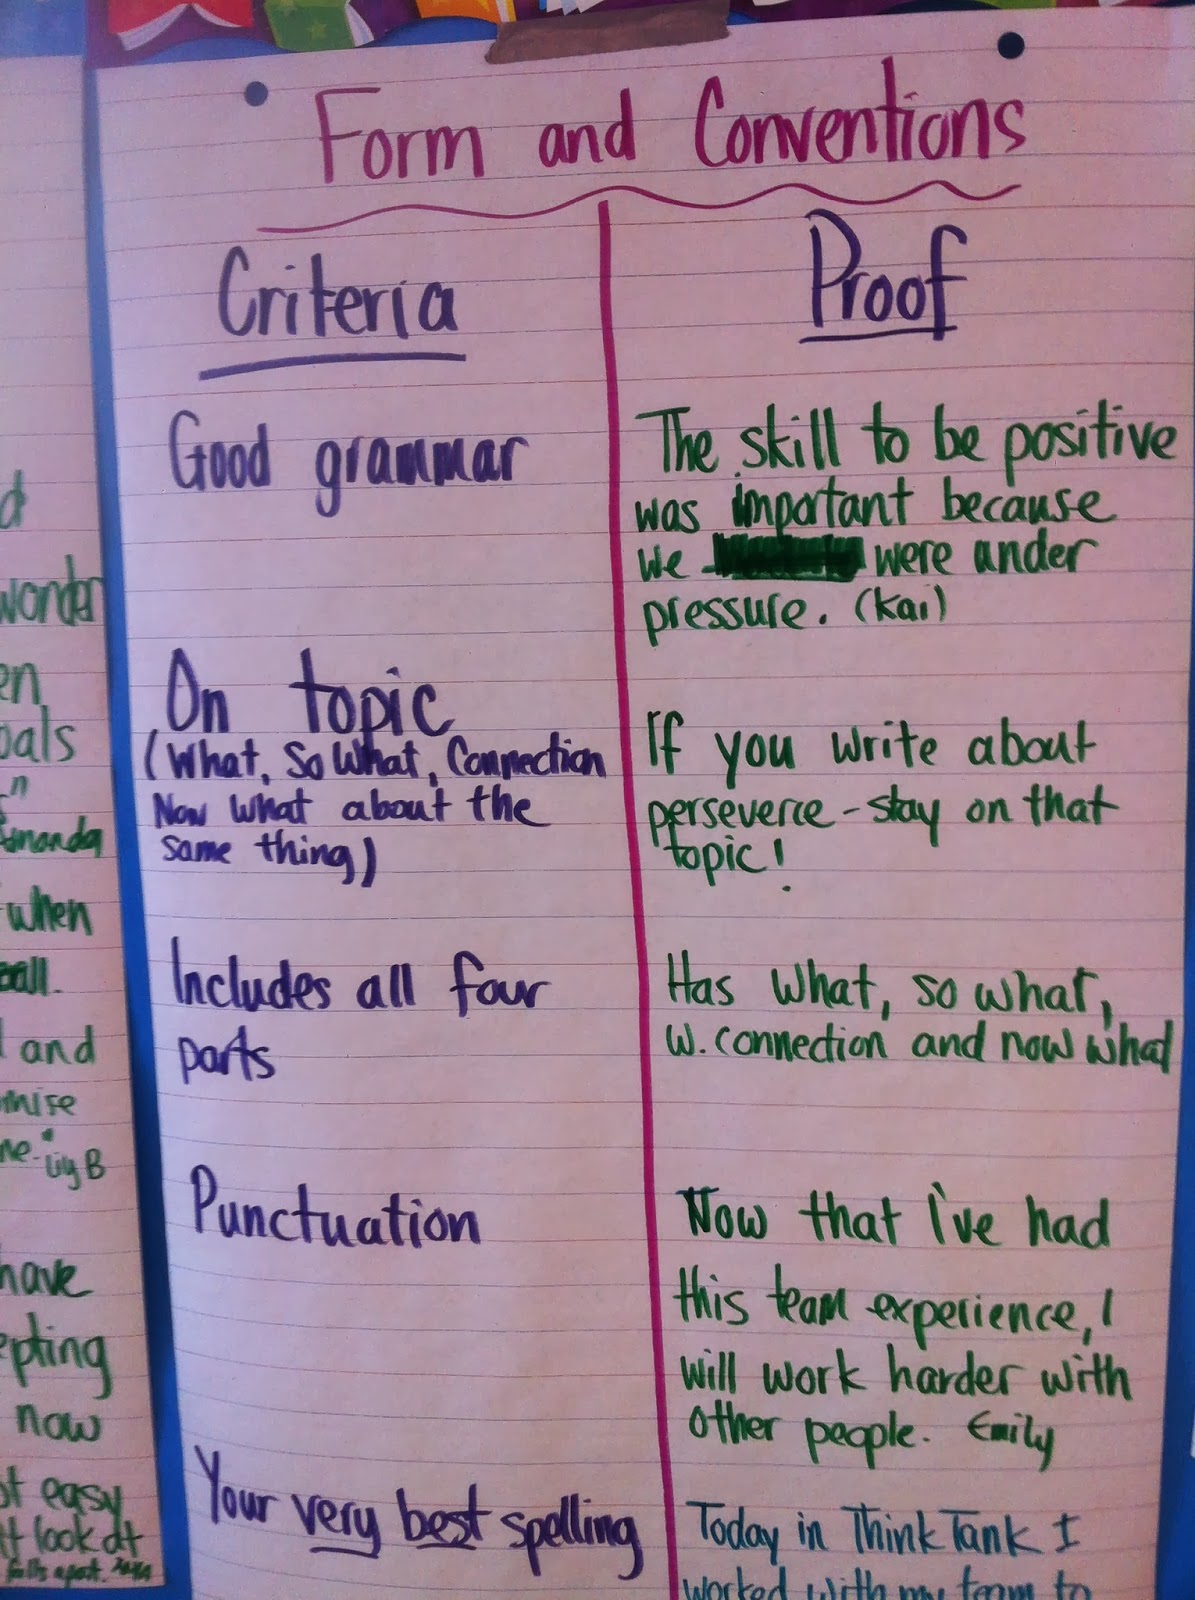 Form and Conventions
Criteria
Proof
Good grammar
The skill to be positive
was important because
we were under
pressure. (Kai)
On topic
(What, So What, Connection
Now What about the
same thing)
If you write about
perseverce - stay on that
topic!
Includes all four
parts
Has what, so what,
w. connection and now what
Punctuation
Now that I've had
this team experience, I
will work harder with
other people. Emily
Your very best spelling
Today in Think Tank I
worked with my team to
d
wonder
en
oals
n
amanda
when
ball.
and
mise
ne-
B
have
epting
now
ot easy
it look at
falls apart.